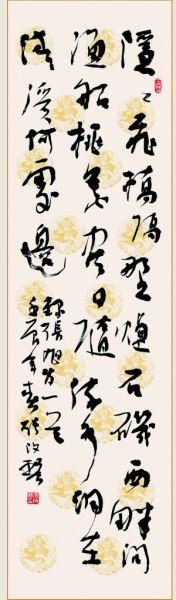 隱〻飛橋隔野煙石磯西畔問
漁船桃花盡日隨流水洞在
清溪何處邊
録張旭詩一首
壬辰年春張